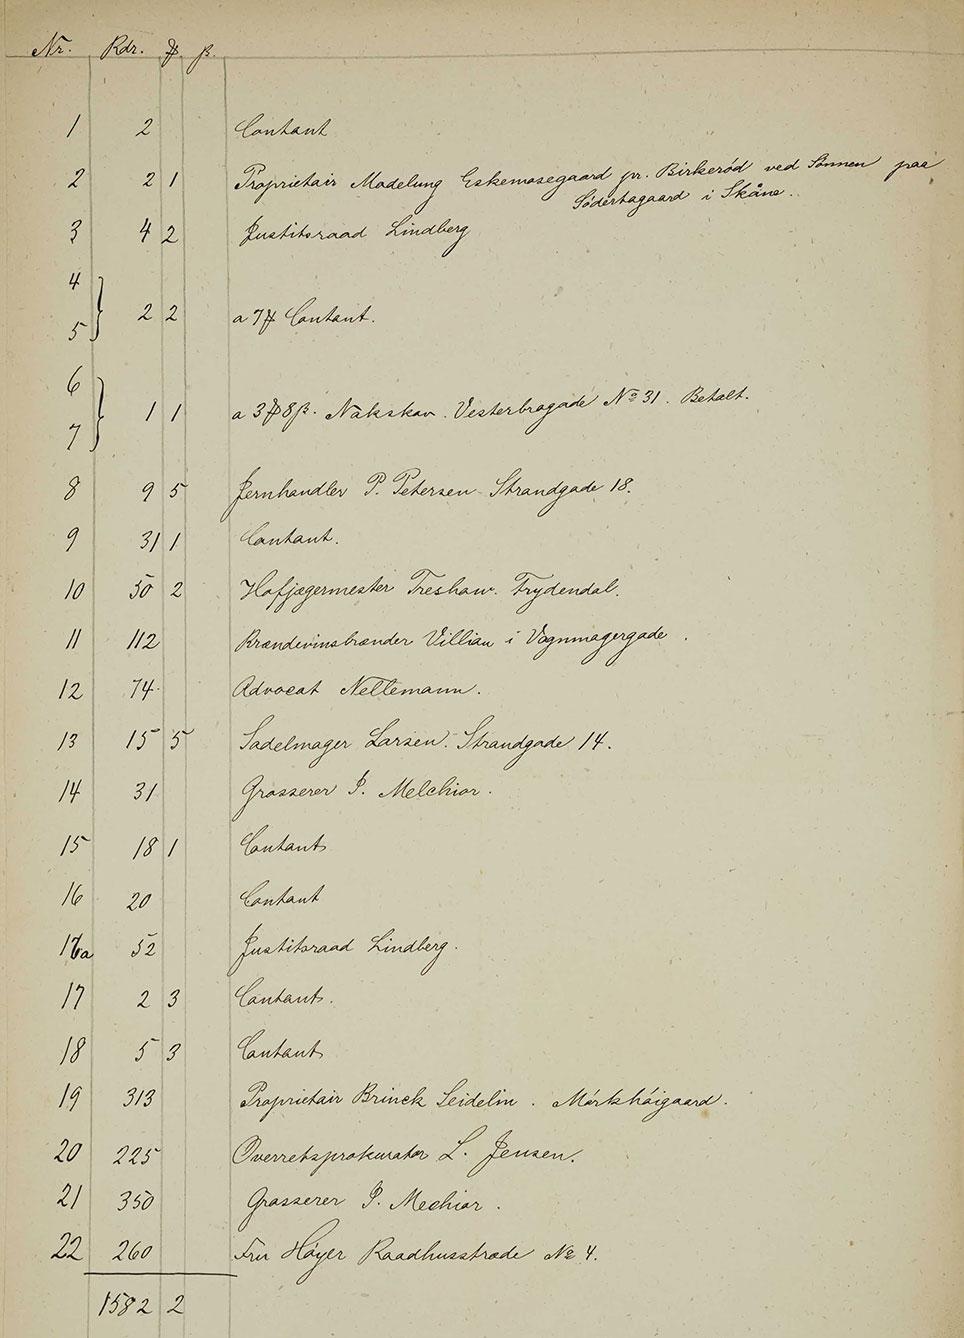 Nr. Rdr. ₰ β.
1 2 Contant
2 2 1 Proprietair Madelung Eskemosegaard pr. Birkerød ved Sønnen paa
Södertogaard i Skåne.
3 4 2 Justitsraad Lindberg
4
5 } 2 2 a 7 ₰ Contant.
6
7 } 1 1 a 3 ₰ 8 β. Nakskov. Vesterbrogade No 31. Betalt.
8 9 5 Jernhandler P. Petersen Strandgade 18.
9 31 1 Contant.
10 50 2 Hofjægermester Treshow. Frydendal.
11 112 Brændevinsbrænder Villiau i Vognmagergade.
12 74. Advocat Nellemann.
13 15 5 Sadelmager Larsen. Strandgade 14.
14 31 Grosserer P. Melchior.
15 18 1 Contant
16 20 Contant
16a 52 Justitsraad Lindberg.
17 2 3 Contant.
18 5 3 Contant
19 313 Proprietair Brinck Seidelin. Mörkhöigaard.
20 225 Overretsprokurator L. Jensen.
21 350 Grosserer P. Mechior.
22 260 Fru Høyer Raadhusstræde No 4.
1582 2